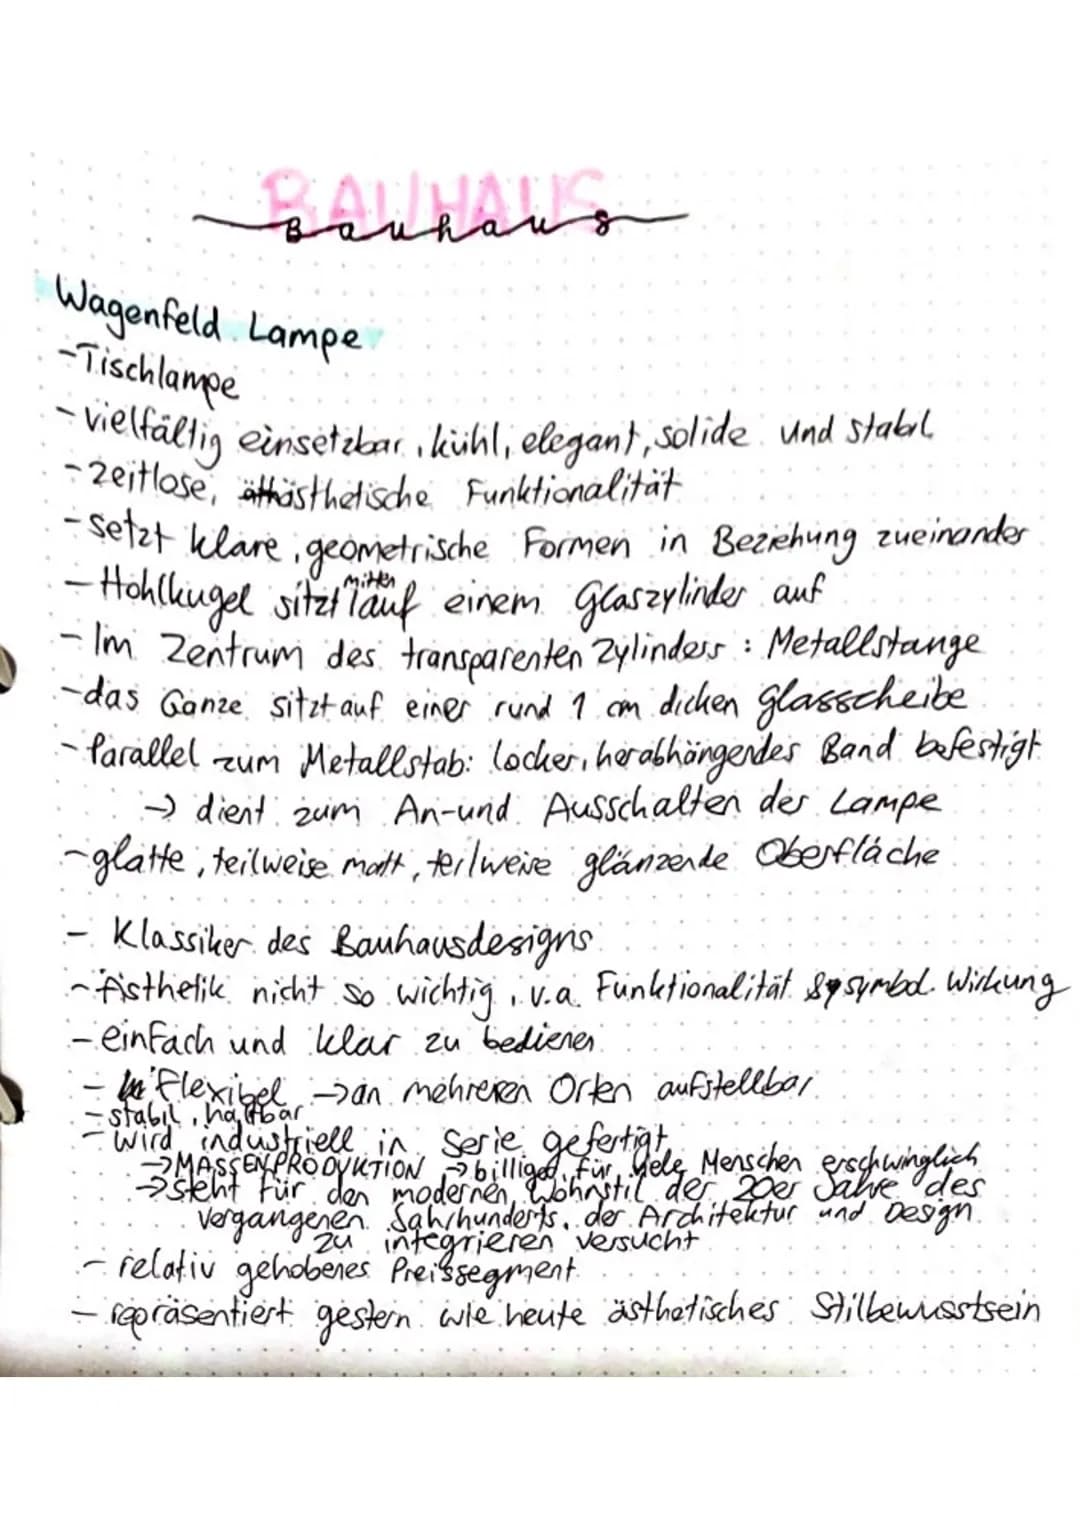 BAUHAUS
Bauhaus
Wagenfeld Lampe
-Tischlampe
-vielfältig einsetzbar, kühl, elegant, solide und stabil
-zeitlose, ästhetische Funktionalität
-setzt klare, geometrische Formen in Beziehung zueinander
-Hohlkugel sitzt mitten auf einem Glaszylinder auf
-Im Zentrum des transparenten Zylinders: Metallstange
-das Ganze sitzt auf einer rund 1 cm dicken Glasscheibe
-Parallel zum Metallstab: locker, herabhängendes Band befestigt
-> dient zum An-und Ausschalten der Lampe
-glatte, teilweise matt, teilweise glänzende Oberfläche
- Klassiker des Bauhausdesigns
-Ästhetik nicht so wichtig, v.a. Funktionalität & symbol. Wirkung
-einfach und klar zu bedienen
- Flexibel -> an mehreren Orten aufstellbar
- stabil, haltbar
- wird industriell in Serie gefertigt
-> MASSENPRODUKTION -> billiger, für viele Menschen erschwinglich
-> steht für den modernen Wohnstil der 20er Jahre des
vergangenen Jahrhunderts, der Architektur und Design
zu integrieren versucht
- relativ gehobenes Preissegment
- repräsentiert gestern wie heute ästhetisches Stilbewusstsein